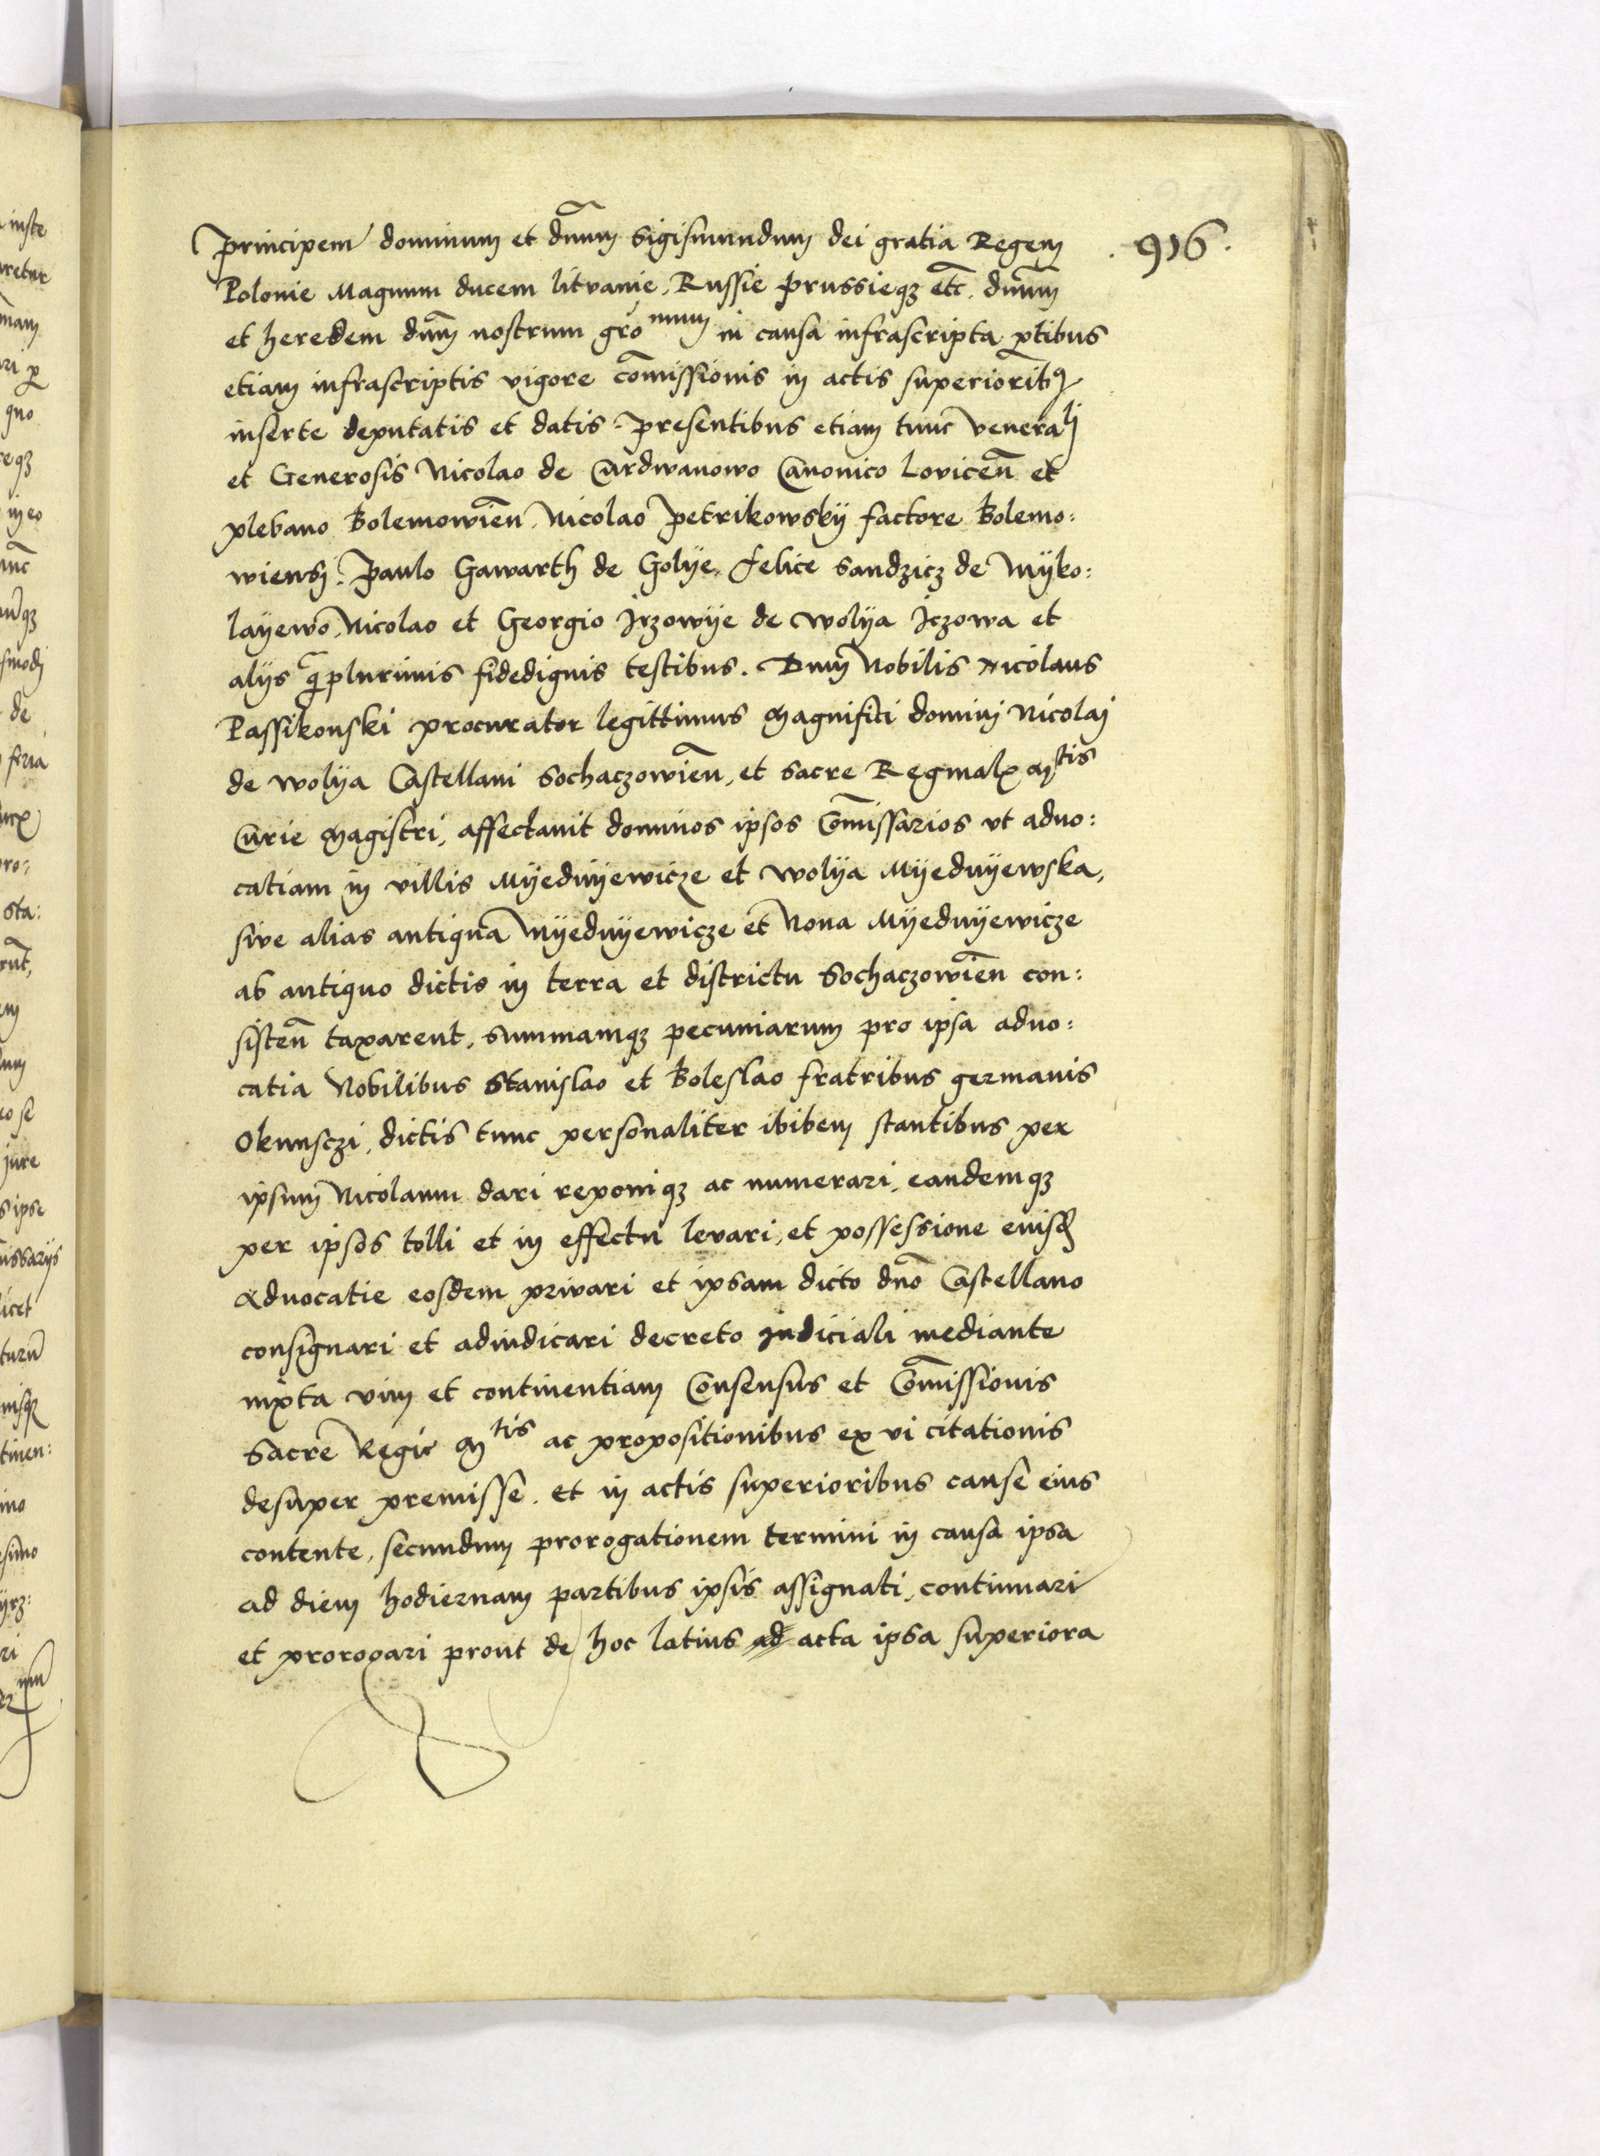 principem dominum et dnum Sigismundum dei gratia Regem
916.
Polonie Magnum ducem litvanie, Russie prussieqz etc. dnum
et heredem dnm nostrum gromum in causa infrascripta ptibus
etiam infrascriptis vigore comissionis in actis superioribq
inserte deputatis et datis. presentibus etiam tunc venerali
et Generosis Nicolao de Curdwanowo Canonico Lovicen et
plebano Bolemowien, Nicolao petrikowskij factore Bolemo:
wiensi. Paulo Gawarth de Golye, felice Sandzicz de Myko:
layewo, Nicolao et Georgio Jrzowye de Wolya Jczowa et
alys qmplurimis fidedignis testibus. Dum Nobilis Nicolaus
Passikonski procurator legittimus Magnifici domini Nicolaj
de Wolya Castellani Sochaczowien, et Sacre Reginal Mtis
Curie Magistri, affectavit dominos ipsos Comissarios ut aduo:
catiam in villis Myednyewicze et Wolya Myednyewska,
sive alias antiqua Myednyewicze et Nona Myednyewicze
ab antiquo dictis in terra et districtu Sochaczowien con:
sisten taxarent, summamqz pecuniarum pro ipsa aduo:
catia Nobilibus Stanislao et Boleslao fratribus germanis
Okunsczi, dictis tunc personaliter ibibem stantibus per
ipsum Nicolaum dari reponiqz ac numerari, eandemqz
per ipsos tolli et in effectu levari, et possessione euisd
Aduocatie eosdem privari et ipsam dicto dno Castellano
consignari et adiudicari decreto Judiciali mediante
iuxta vim et continentiam Consensus et Comissionis
Sacre Regie Mtis ac propositionibus ex vi citationis
desuper premisse. et in actis superioribus cause eius
contente, secundum prorogationem termini in causa ipsa
ad diem hodiernam partibus ipsis assignati, continuari
et prorogari prout de hoc latius ad acta ipsa superiora